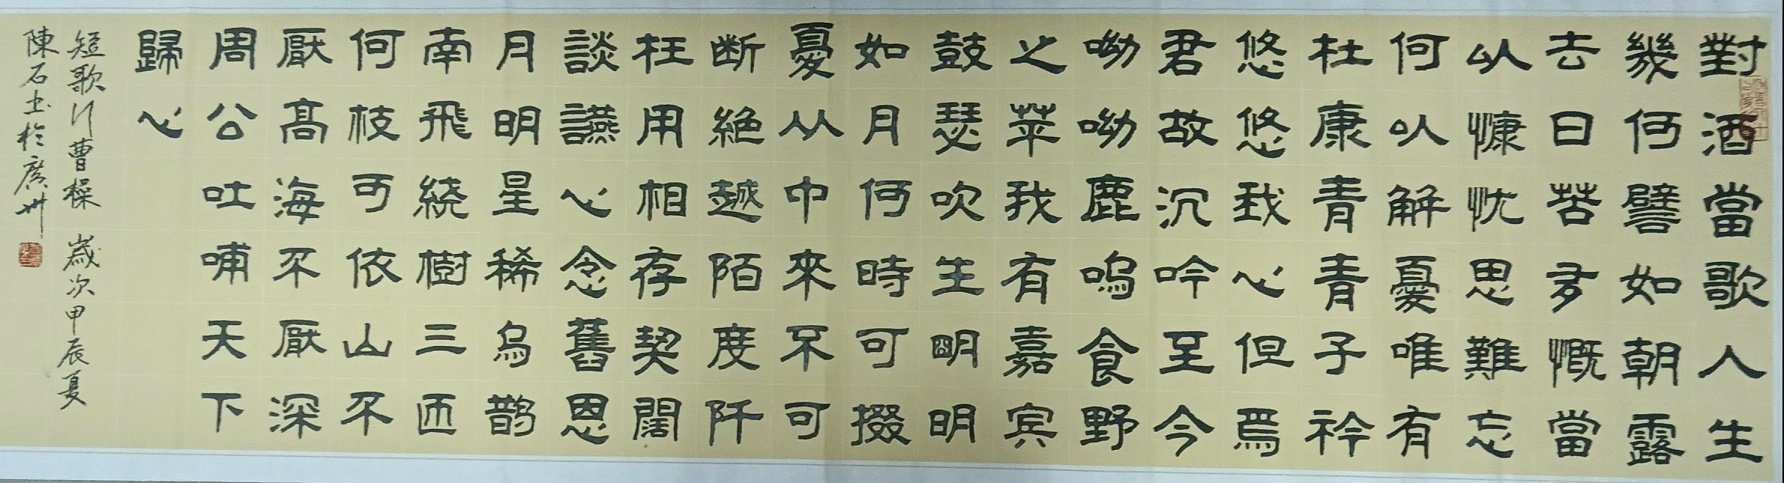 對酒當歌人生
幾何譬如朝露
去日苦多慨當
以慷忧思難忘
何以解憂唯有
杜康青青子衿
悠悠我心但焉
君故沉吟至今
呦呦鹿嗚食野
之苹我有嘉宾
鼓瑟吹生明明
如月何時可掇
憂从中來不可
断絕越陌度阡
枉用相存契闊
談讌心念舊恩
月明星稀烏鹊
南飛繞樹三匝
何枝可依山不
厭高海不厭深
周公吐哺天下
歸心
短歌行曹操 歲次甲辰夏
陳石书於廣州